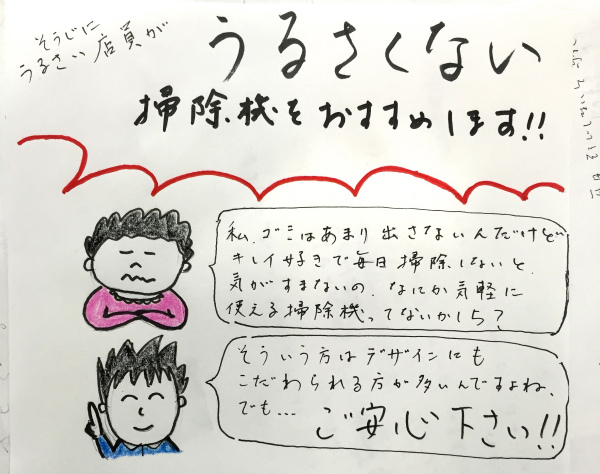 そうじに
うるさい店員が
うるさくない
掃除機をおすすめします!!
私、ゴミはあまり出さないんだけど
キレイ好きで毎日掃除しないと
気がすまないの、なにか気軽に
使える掃除機ってないかしら？
そういう方はデザインにも
こだわられる方が多いんですよね、
でも… ご安心下さい!!